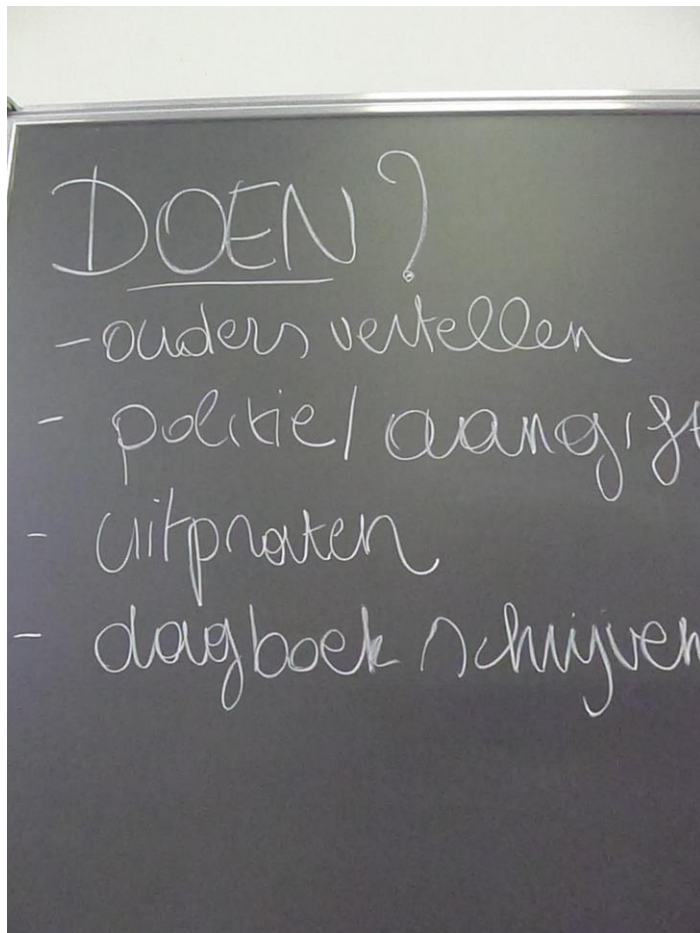 DOEN?
- ouders vertellen
- politie/ aangift
- uitpraten
- dagboek schrijven